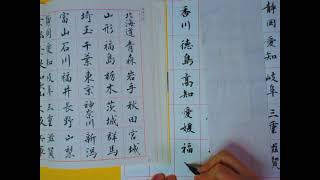 静岡愛知岐阜三重滋賀
香川徳島高知愛媛福
北海道青森岩手秋田宮城
山形福島栃木茨城群馬
埼玉千葉東京神奈川新潟
富山石川福井長野山梨
静岡愛知岐阜三重滋賀